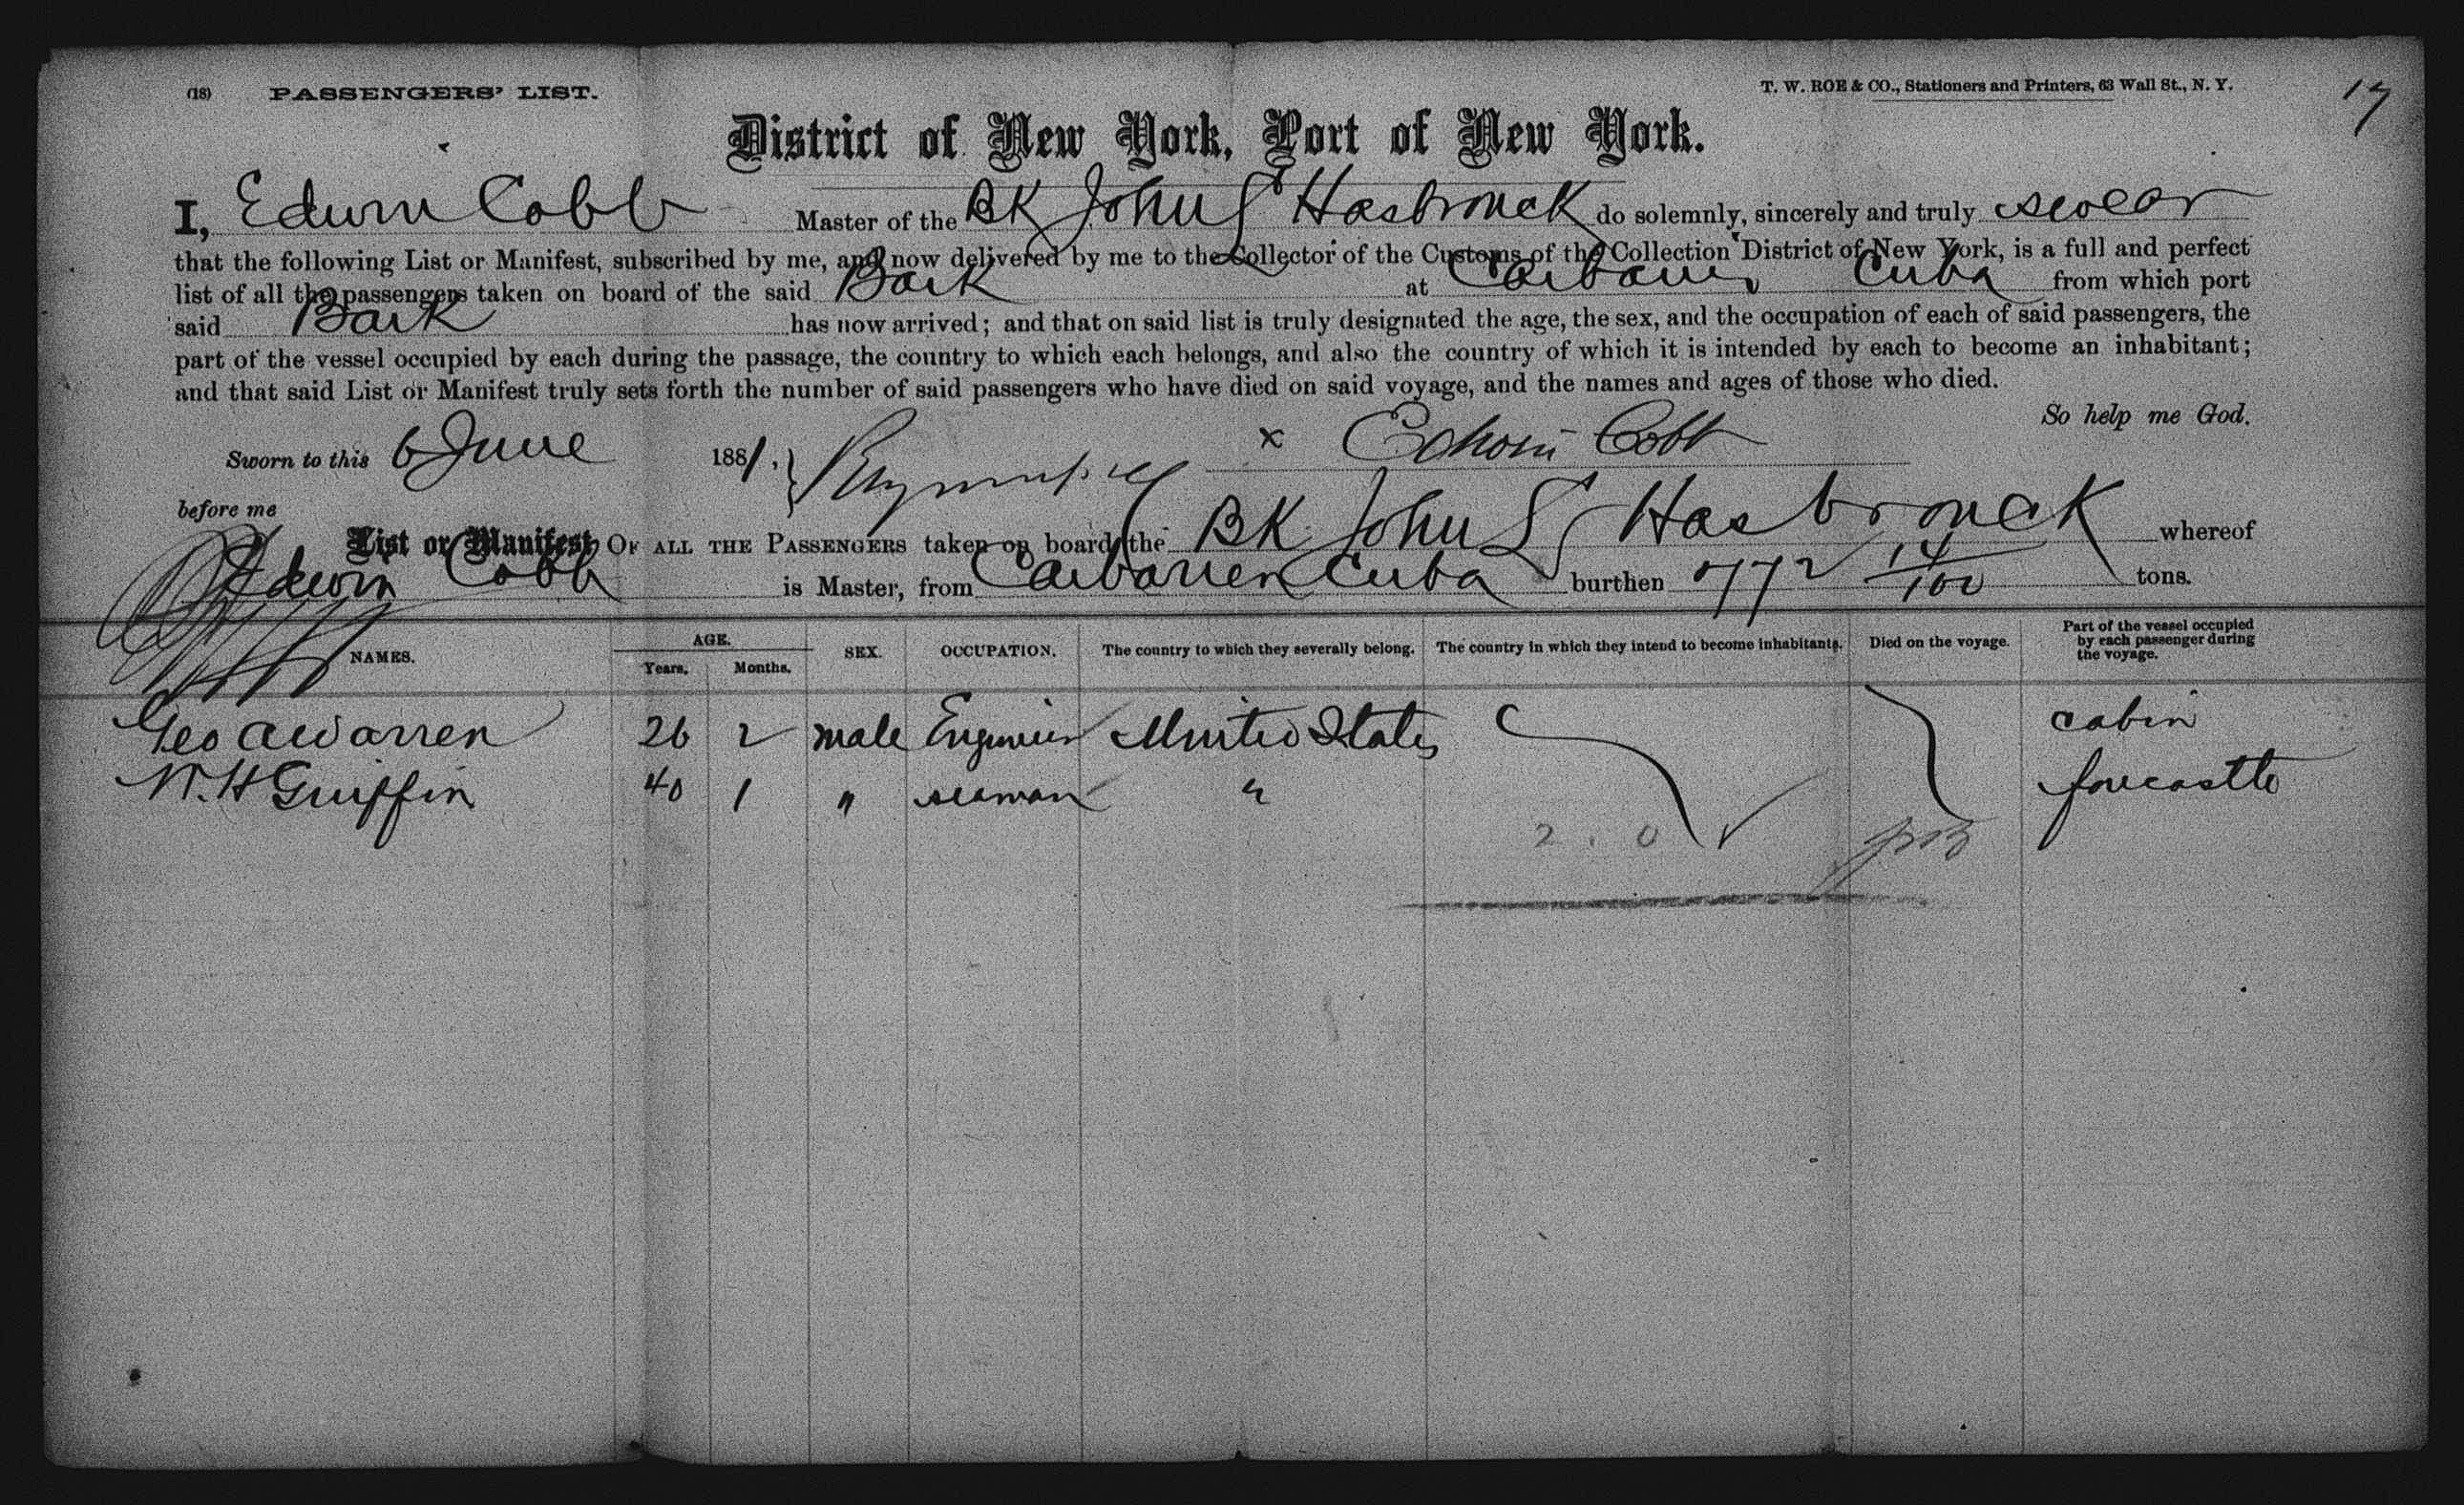 (18) PASSENGERS' LIST.
T. W. ROE & CO., Stationers and Printers, 63 Wall St., N. Y.
17
District of New York, Port of New York.
I, Edwin Cobb Master of the BK John S Hasbrouck do solemnly, sincerely and truly swear
that the following List or Manifest, subscribed by me, and now delivered by me to the Collector of the Customs of the Collection District of New York, is a full and perfect
list of all the passengers taken on board of the said Bark at Cuba from which port
said Bark has now arrived; and that on said list is truly designated the age, the sex, and the occupation of each of said passengers, the
part of the vessel occupied by each during the passage, the country to which each belongs, and also the country of which it is intended by each to become an inhabitant;
and that said List or Manifest truly sets forth the number of said passengers who have died on said voyage, and the names and ages of those who died.
So help me God.
Sworn to this 6 June 1881, x Edwin Cobb
before me
List or Manifest OF ALL THE PASSENGERS taken on board the BK John S Hasbrouck whereof
Edwin Cobb is Master, from Caibarien Cuba burthen 772 14/100 tons.
NAMES. AGE. Years. Months. SEX. OCCUPATION. The country to which they severally belong. The country in which they intend to become inhabitants. Died on the voyage. Part of the vessel occupied by each passenger during the voyage.
Geo A Warren 26 2 male Engineer United States cabin
W. H Griffin 40 1 " seaman " forecastle
2 . 0